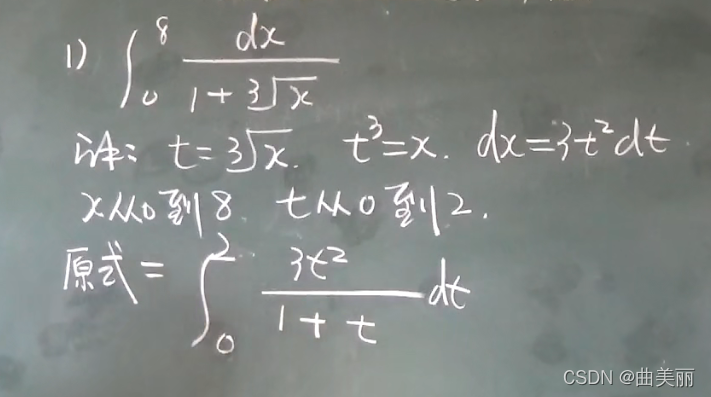 1) ∫₀⁸ dx / (1 + 3√x)
t = 3√x. t³ = x. dx = 3t² dt.
x从0到8. t从0到2.
原式 = ∫₀² 3t² / (1 + t) dt
CSDN @曲美丽